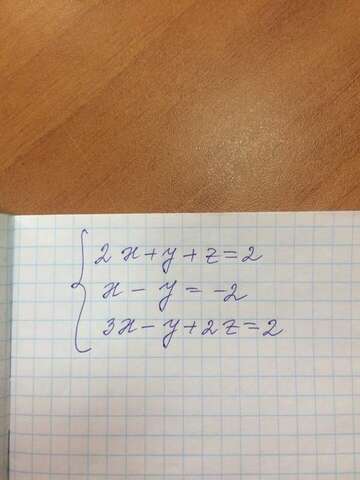 2x+y+z=2
x-y=-2
3x-y+2z=2